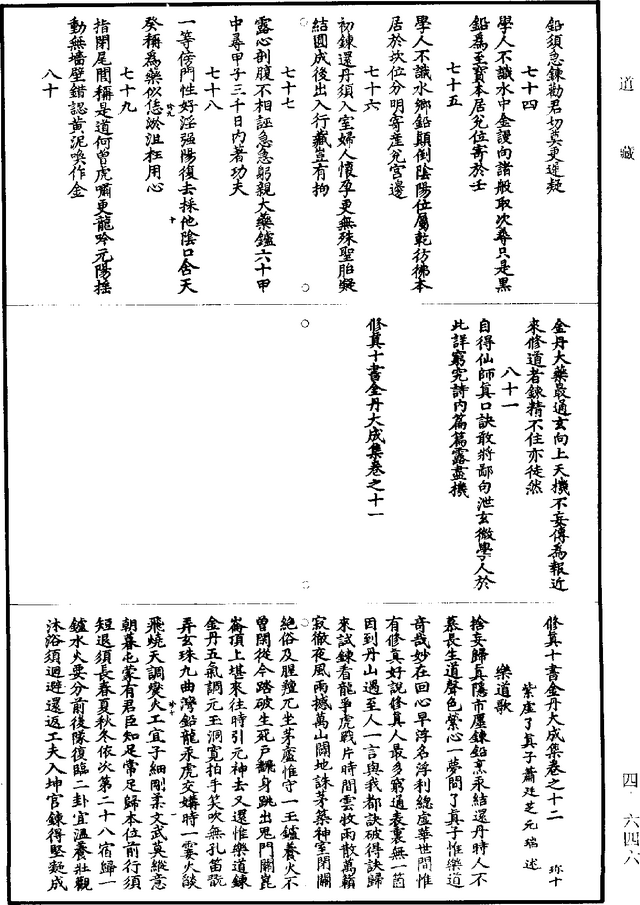 道藏
四·六四六
鉛須急鍊勸君切莫更遲疑
七十四
學人不識水中金謾向諸般取次尋只是黑
鉛爲至寳本居兊位寄於壬
七十五
學人不識水鄉鉛顛倒陰陽位屬乾彷彿本
居於坎位分明寄產兊宫邊
七十六
初鍊還丹須入室婦人懷孕更無殊聖胎凝
結圓成後出入行藏豈有拘
七十七
露心剖腹不相誣急急躬親大藥鑪六十甲
中尋甲子三千日内著功夫
七十八
一等傍門性好淫強陽復去採他陰口含天
癸稱爲藥似恁淤沮枉用心
七十九
指閉尾閭稱是道何曾虎嘯更龍吟元陽摇
動無墻壁錯認黄泥喚作金
八十
金丹大藥最通玄向上天機不妄傳爲報近
來修道者鍊精不住亦徒然
八十一
自得仙師眞口訣敢將鄙句泄玄微學人於
此詳窮究詩内篇篇露盡機
修眞十書金丹大成集卷之十一
修眞十書金丹大成集卷之十二 珎十
紫虚了眞子蕭廷芝元瑞述
樂道歌
捨妄歸眞隱市廛鍊鉛烹汞結還丹時人不
慕長生道聲色縈心一夢間了眞子惟樂道
奇哉妙在回心早浮名浮利總虚華世間惟
有修眞好說修眞人最多窮通表裏無一箇
因到丹山遇至人一言與我都訣破得訣歸
來試鍊看龍爭虎戰片時間雲收雨散萬籟
寂徹夜風雨撼萬山闢地誅茅築神室閉關
絶俗及腥羶兀坐茅廬惟守一玉鑪養火不
曾闊從今踏破生死戸飜身跳出鬼門關崑
崙頂上堪來往時引元神去又還惟樂道鍊
金丹五氣調元玉洞寬拍手笑吹無孔笛翫
弄玄珠九曲灣鉛龍汞虎交媾時一霎火燄
飛燒天調燮火工宜子細剛柔文武莫縱意
朝暮屯蒙有君臣知足常足歸本位前行須
短退須長春夏秋冬依次第二十八宿歸一
鑪水火要分前後隊復臨二卦宜溫養壯觀
沐浴須迴避還返工夫入坤宫鍊得堅凝成